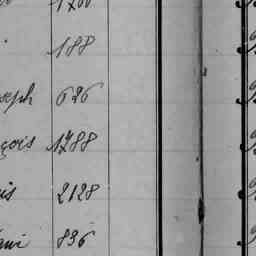 188
seph 626
çois 1788
is 2128
836